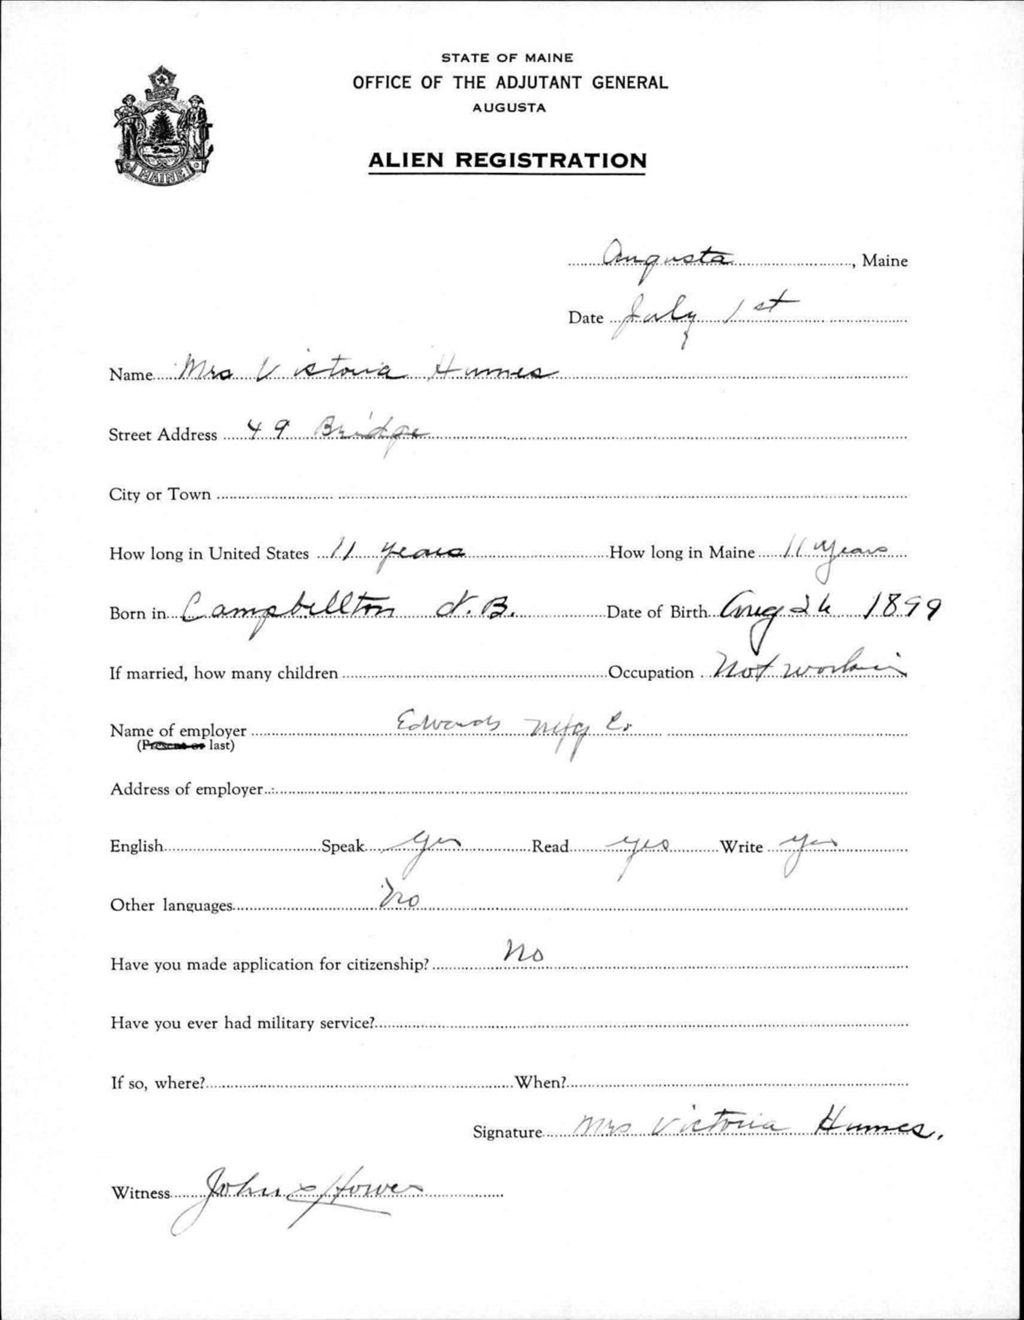 STATE OF MAINE
OFFICE OF THE ADJUTANT GENERAL
AUGUSTA
ALIEN REGISTRATION
MAINE
Augusta, Maine
Date July 1st
Name Mrs Victoria Humes
Street Address 49 Bridge
City or Town
How long in United States 11 years How long in Maine 11 years
Born in Campbellton N.B. Date of Birth Aug 26 1899
If married, how many children Occupation Not workin
Name of employer Edwards Mfg Co
(Present or last)
Address of employer
English Speak yes Read yes Write yes
Other languages No
Have you made application for citizenship? No
Have you ever had military service?
If so, where? When?
Signature Mrs Victoria Humes.
Witness John Howe